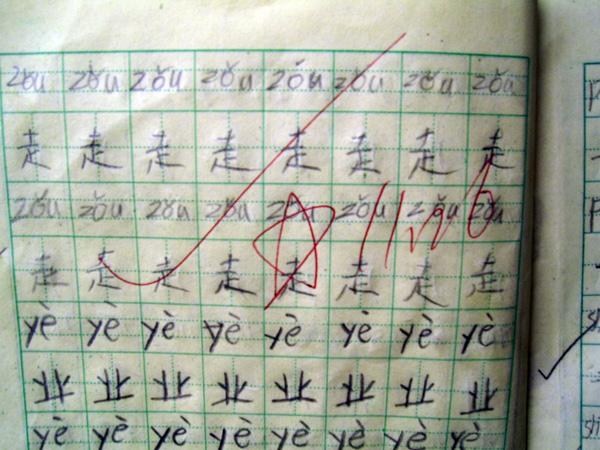 zǒu zǒu zǒu zǒu zǒu zǒu zǒu zǒu
走 走 走 走 走 走 走 走
zǒu zǒu zǒu zǒu zǒu zǒu zǒu zǒu
走 走 走 走 走 走 走 走
yè yè yè yè yè yè yè yè
业 业 业 业 业 业 业 业
yè yè yè yè yè yè yè yè